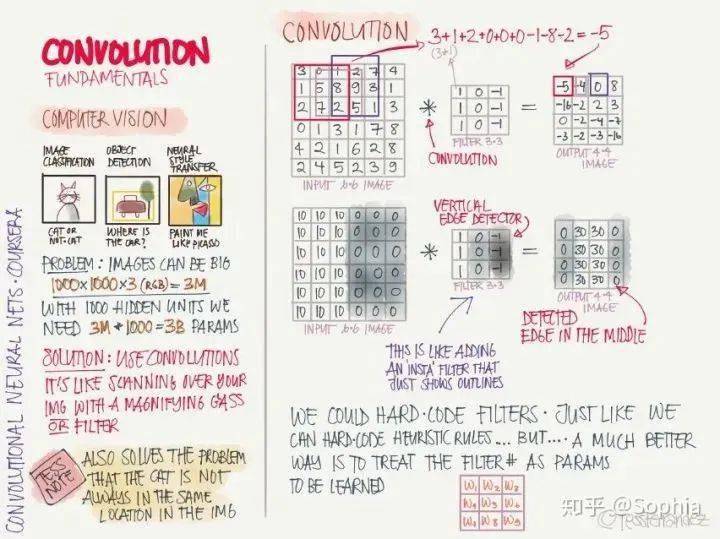 CONVOLUTIONAL NEURAL NETS · COURSERA
CONVOLUTION
FUNDAMENTALS
COMPUTER VISION
IMAGE CLASSIFICATION
OBJECT DETECTION
NEURAL STYLE TRANSFER
CAT OR NOT-CAT
WHERE IS THE CAR?
PAINT ME LIKE PICASSO
PROBLEM: IMAGES CAN BE BIG
1000×1000×3 (RGB) = 3M
WITH 1000 HIDDEN UNITS WE
NEED 3M * 1000 = 3B PARAMS
SOLUTION: USE CONVOLUTIONS
IT'S LIKE SCANNING OVER YOUR
IMG WITH A MAGNIFYING GASS
OR FILTER
TESS NOTE
ALSO SOLVES THE PROBLEM
THAT THE CAT IS NOT
ALWAYS IN THE SAME
LOCATION IN THE IMG
CONVOLUTION
3+1+2+0+0+0-1-8-2=-5
(3*1)
3 0 1 2 7 4
1 5 8 9 3 1
2 7 2 5 1 3
0 1 3 1 7 8
4 2 1 6 2 8
2 4 5 2 3 9
INPUT 6·6 IMAGE
*
CONVOLUTION
1 0 -1
1 0 -1
1 0 -1
FILTER 3×3
=
-5 -4 0 8
-16 -2 2 3
0 -2 -4 -7
-3 -2 -3 -16
OUTPUT 4·4 IMAGE
10 10 10 0 0 0
10 10 10 0 0 0
10 10 10 0 0 0
10 10 10 0 0 0
10 10 10 0 0 0
10 10 10 0 0 0
INPUT 6·6 IMAGE
*
VERTICAL EDGE DETECTOR
1 0 -1
1 0 -1
1 0 -1
FILTER 3×3
=
0 30 30 0
0 30 30 0
0 30 30 0
0 30 30 0
OUTPUT 4·4 IMAGE
THIS IS LIKE ADDING
AN 'INSTA' FILTER THAT
JUST SHOWS OUTLINES
DETECTED
EDGE IN THE MIDDLE
WE COULD HARD-CODE FILTERS · JUST LIKE WE
CAN HARD-CODE HEURISTIC RULES... BUT.... A MUCH BETTER
WAY IS TO TREAT THE FILTER# AS PARAMS
TO BE LEARNED
W1 W2 W3
W4 W5 W6
W7 W8 W9
知乎 @Sophia
@TessFerrandez